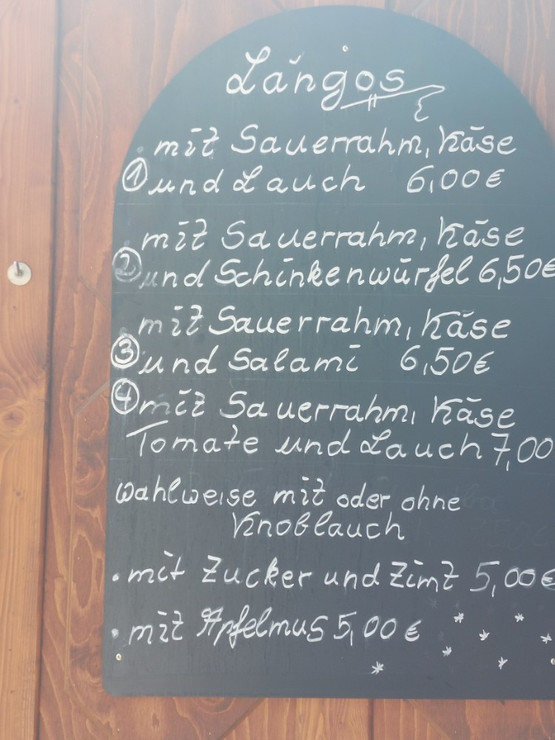 Lángos
mit Sauerrahm, Käse
① und Lauch 6,00€
mit Sauerrahm, Käse
② und Schinkenwürfel 6,50€
mit Sauerrahm, Käse
③ und Salami 6,50€
④ mit Sauerrahm, Käse
Tomate und Lauch 7,00
Wahlweise mit oder ohne
Knoblauch
• mit Zucker und Zimt 5,00€
• mit Apfelmus 5,00€